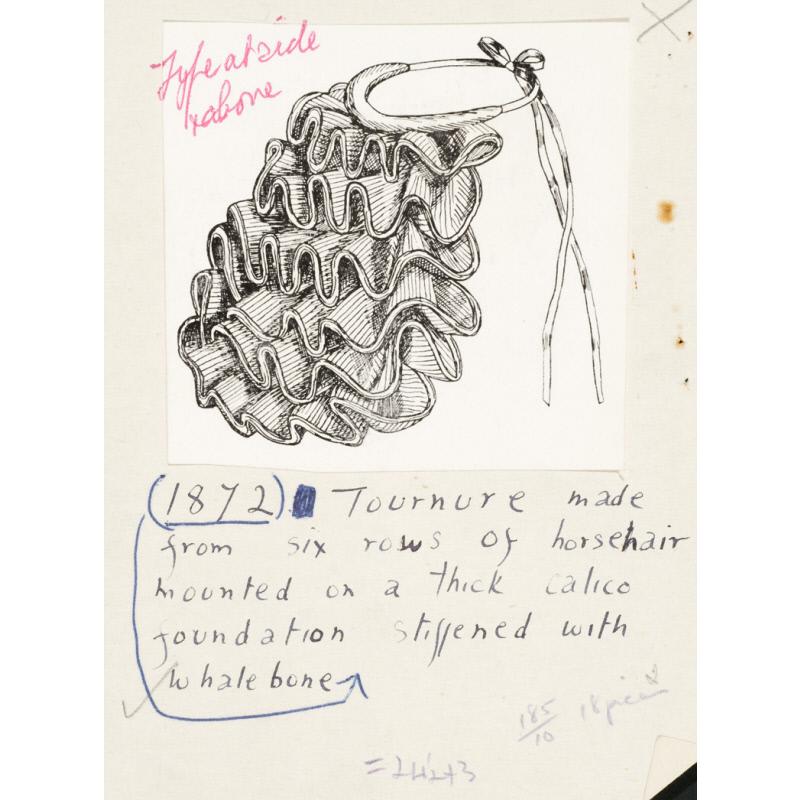 Type at side
(1872) Tournure made
from six rows of horsehair
mounted on a thick calico
foundation stiffened with
whalebone
185/10 18